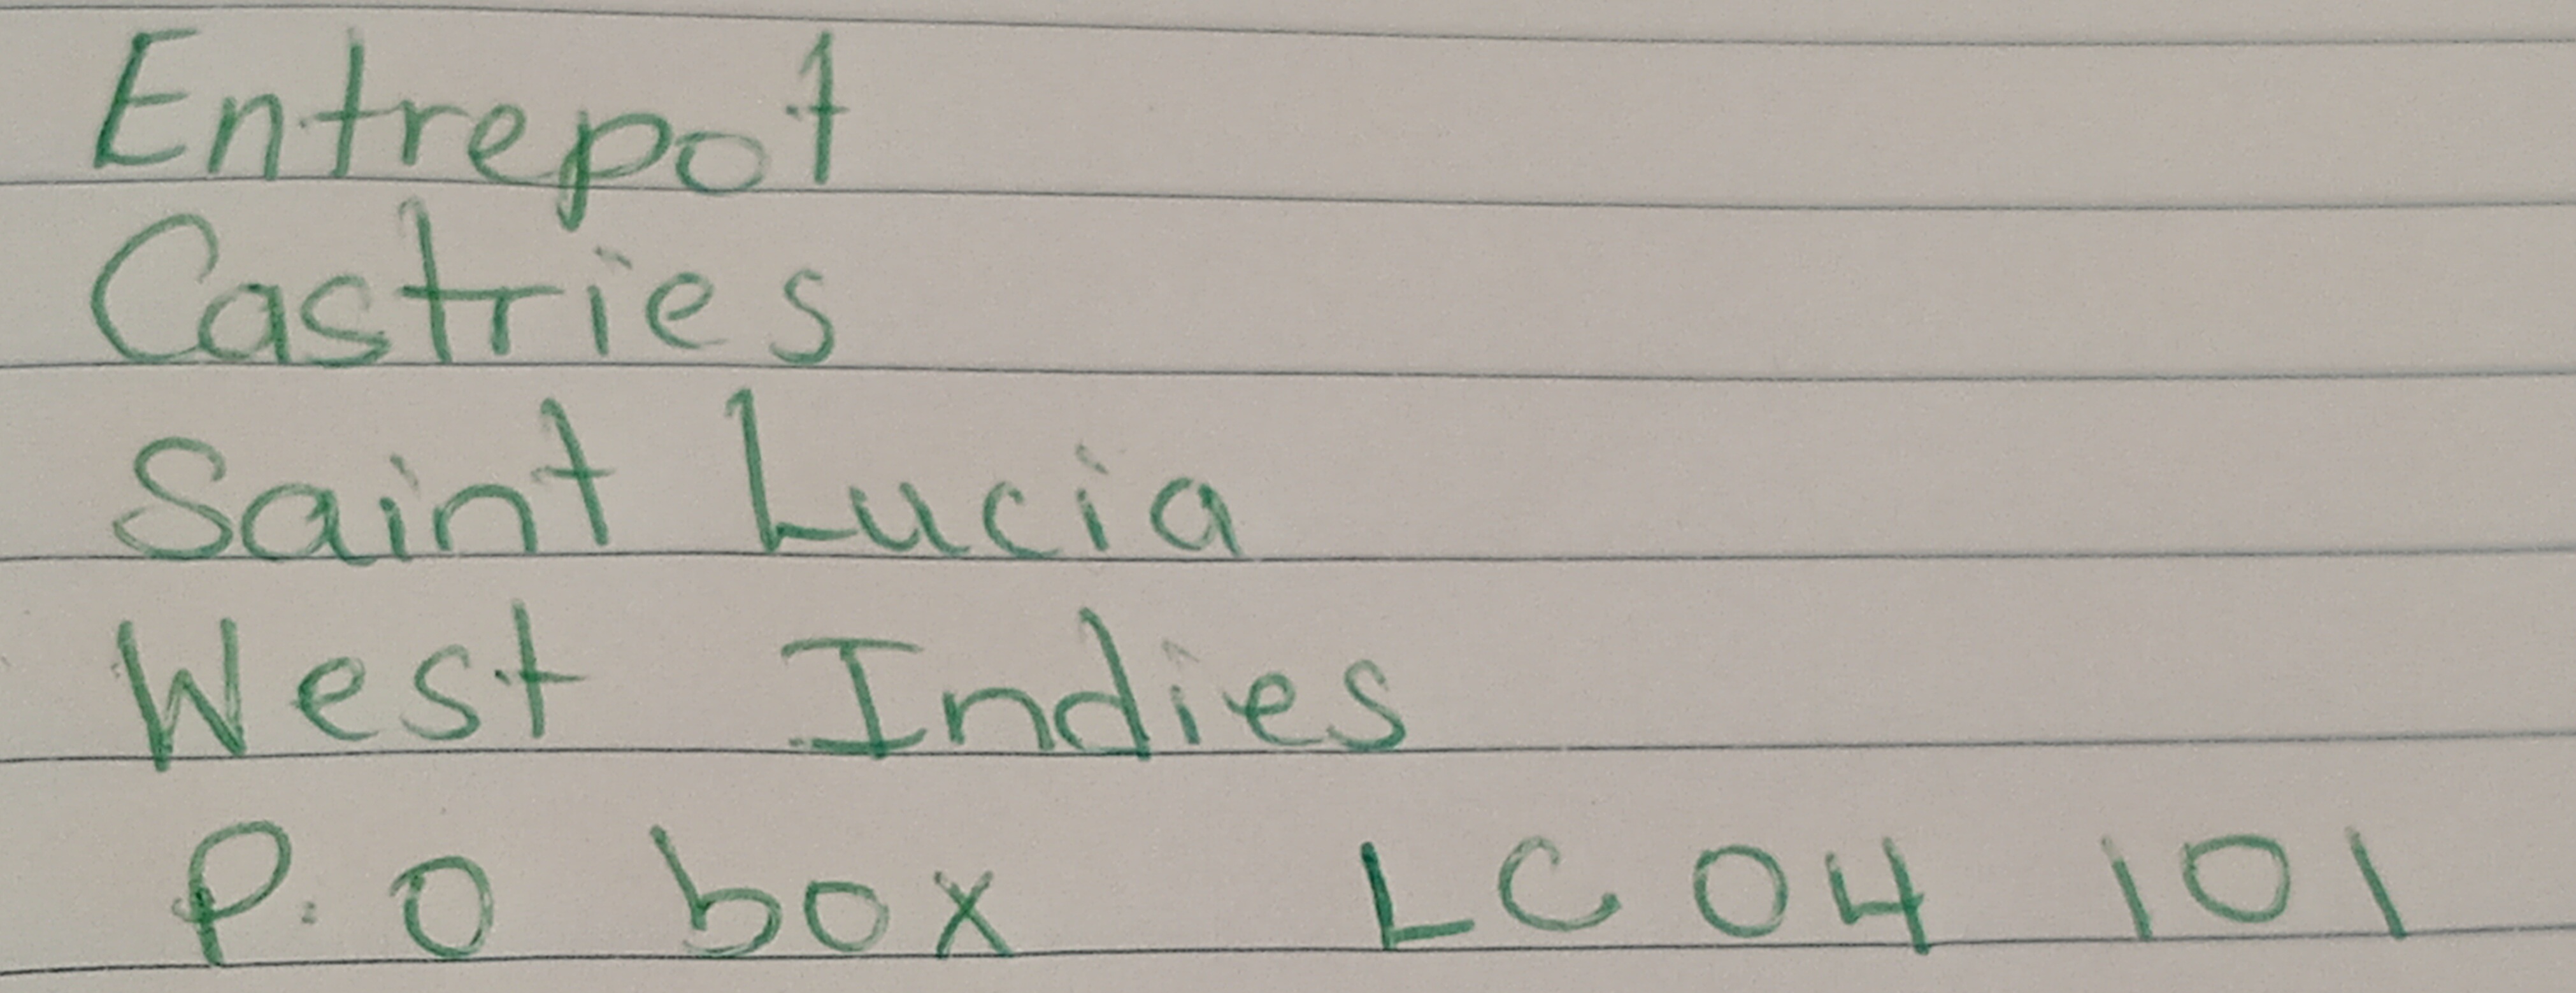 Entrepot
Castries
Saint Lucia
West Indies
P.O box LC04 101